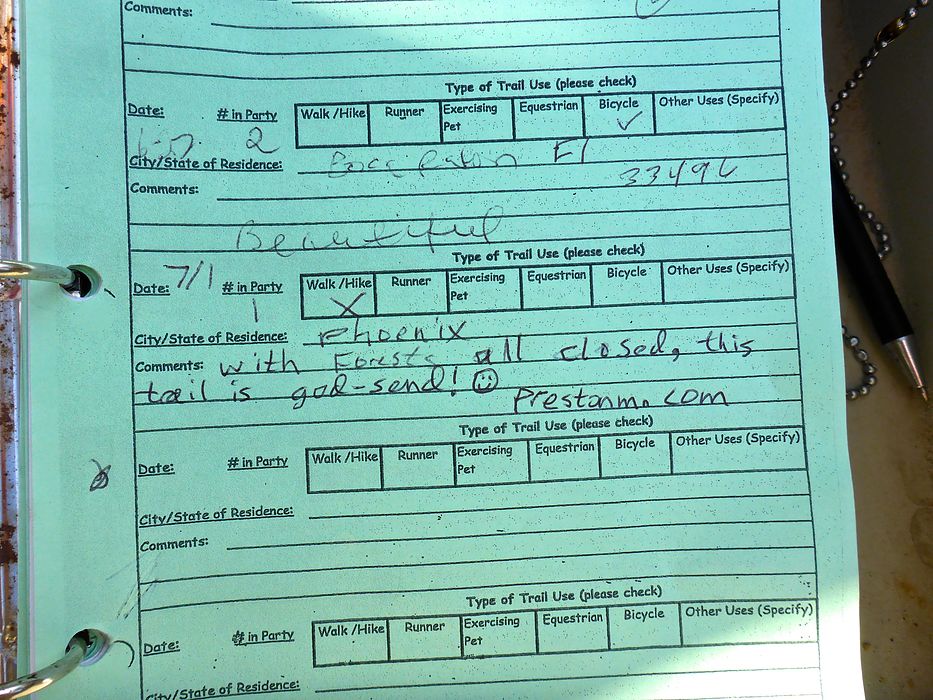 Comments:
Type of Trail Use (please check)
Date: # in Party Walk /Hike Runner Exercising Pet Equestrian Bicycle Other Uses (Specify)
2 ✓
City/State of Residence: Boca Raton Fl
33496
Comments:
Beautiful
Type of Trail Use (please check)
Date: 7/1 # in Party Walk /Hike Runner Exercising Pet Equestrian Bicycle Other Uses (Specify)
1 X
City/State of Residence: Phoenix
Comments: with Forests all closed, this
trail is god-send! ☺
Prestonm.com
Type of Trail Use (please check)
Date: # in Party Walk /Hike Runner Exercising Pet Equestrian Bicycle Other Uses (Specify)
City/State of Residence:
Comments:
Type of Trail Use (please check)
Date: # in Party Walk /Hike Runner Exercising Pet Equestrian Bicycle Other Uses (Specify)
City/State of Residence: